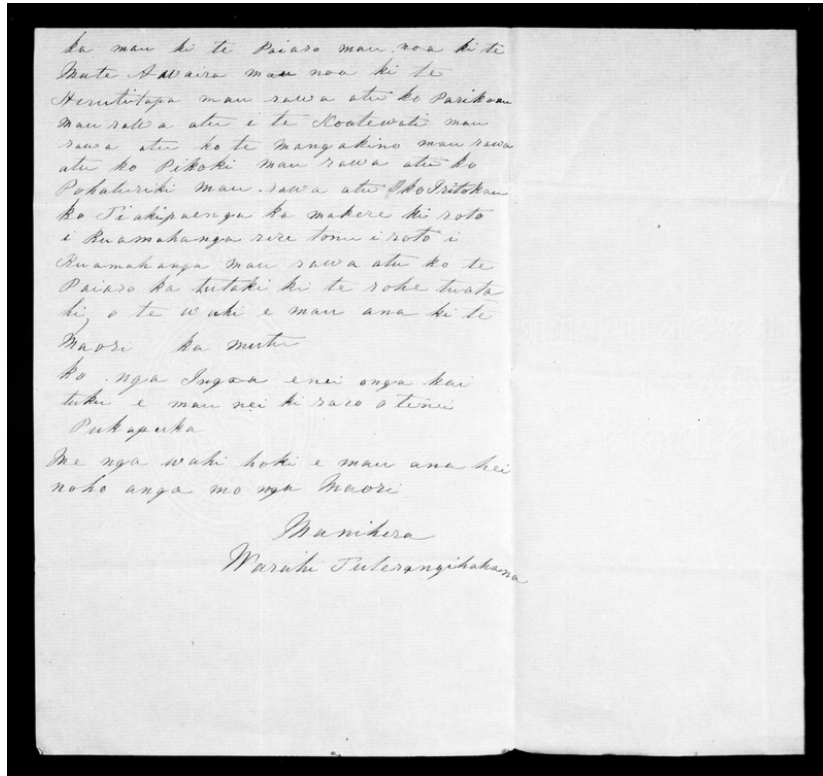 ka mau ki te Paiaro mau noa ki te
Mate Awaira mau noa ki te
Herutitapa mau rawa atu ko Parikoau
mau rawa atu i te Koatewati mau
rawa atu ko te Mangakino mau rawa
atu ko Pikoki mau rawa atu ko
Pohaturiki mau rawa atu ko Iritokau
ko Tiakipaenga ka makere ki roto
i Ruamahanga rere tonu i roto i
Ruamahanga mau rawa atu ko te
Paiaro ka tutaki ki te rohe tuata
hi, o te wahi e mau ana ki te
Maori ka mutu
ko nga Ingoa enei onga kai
tuku e mau nei ki raro o tenei
Pukapuka
Me nga wahi hoki e mau ana hei
noho anga mo nga Maori
Manihera